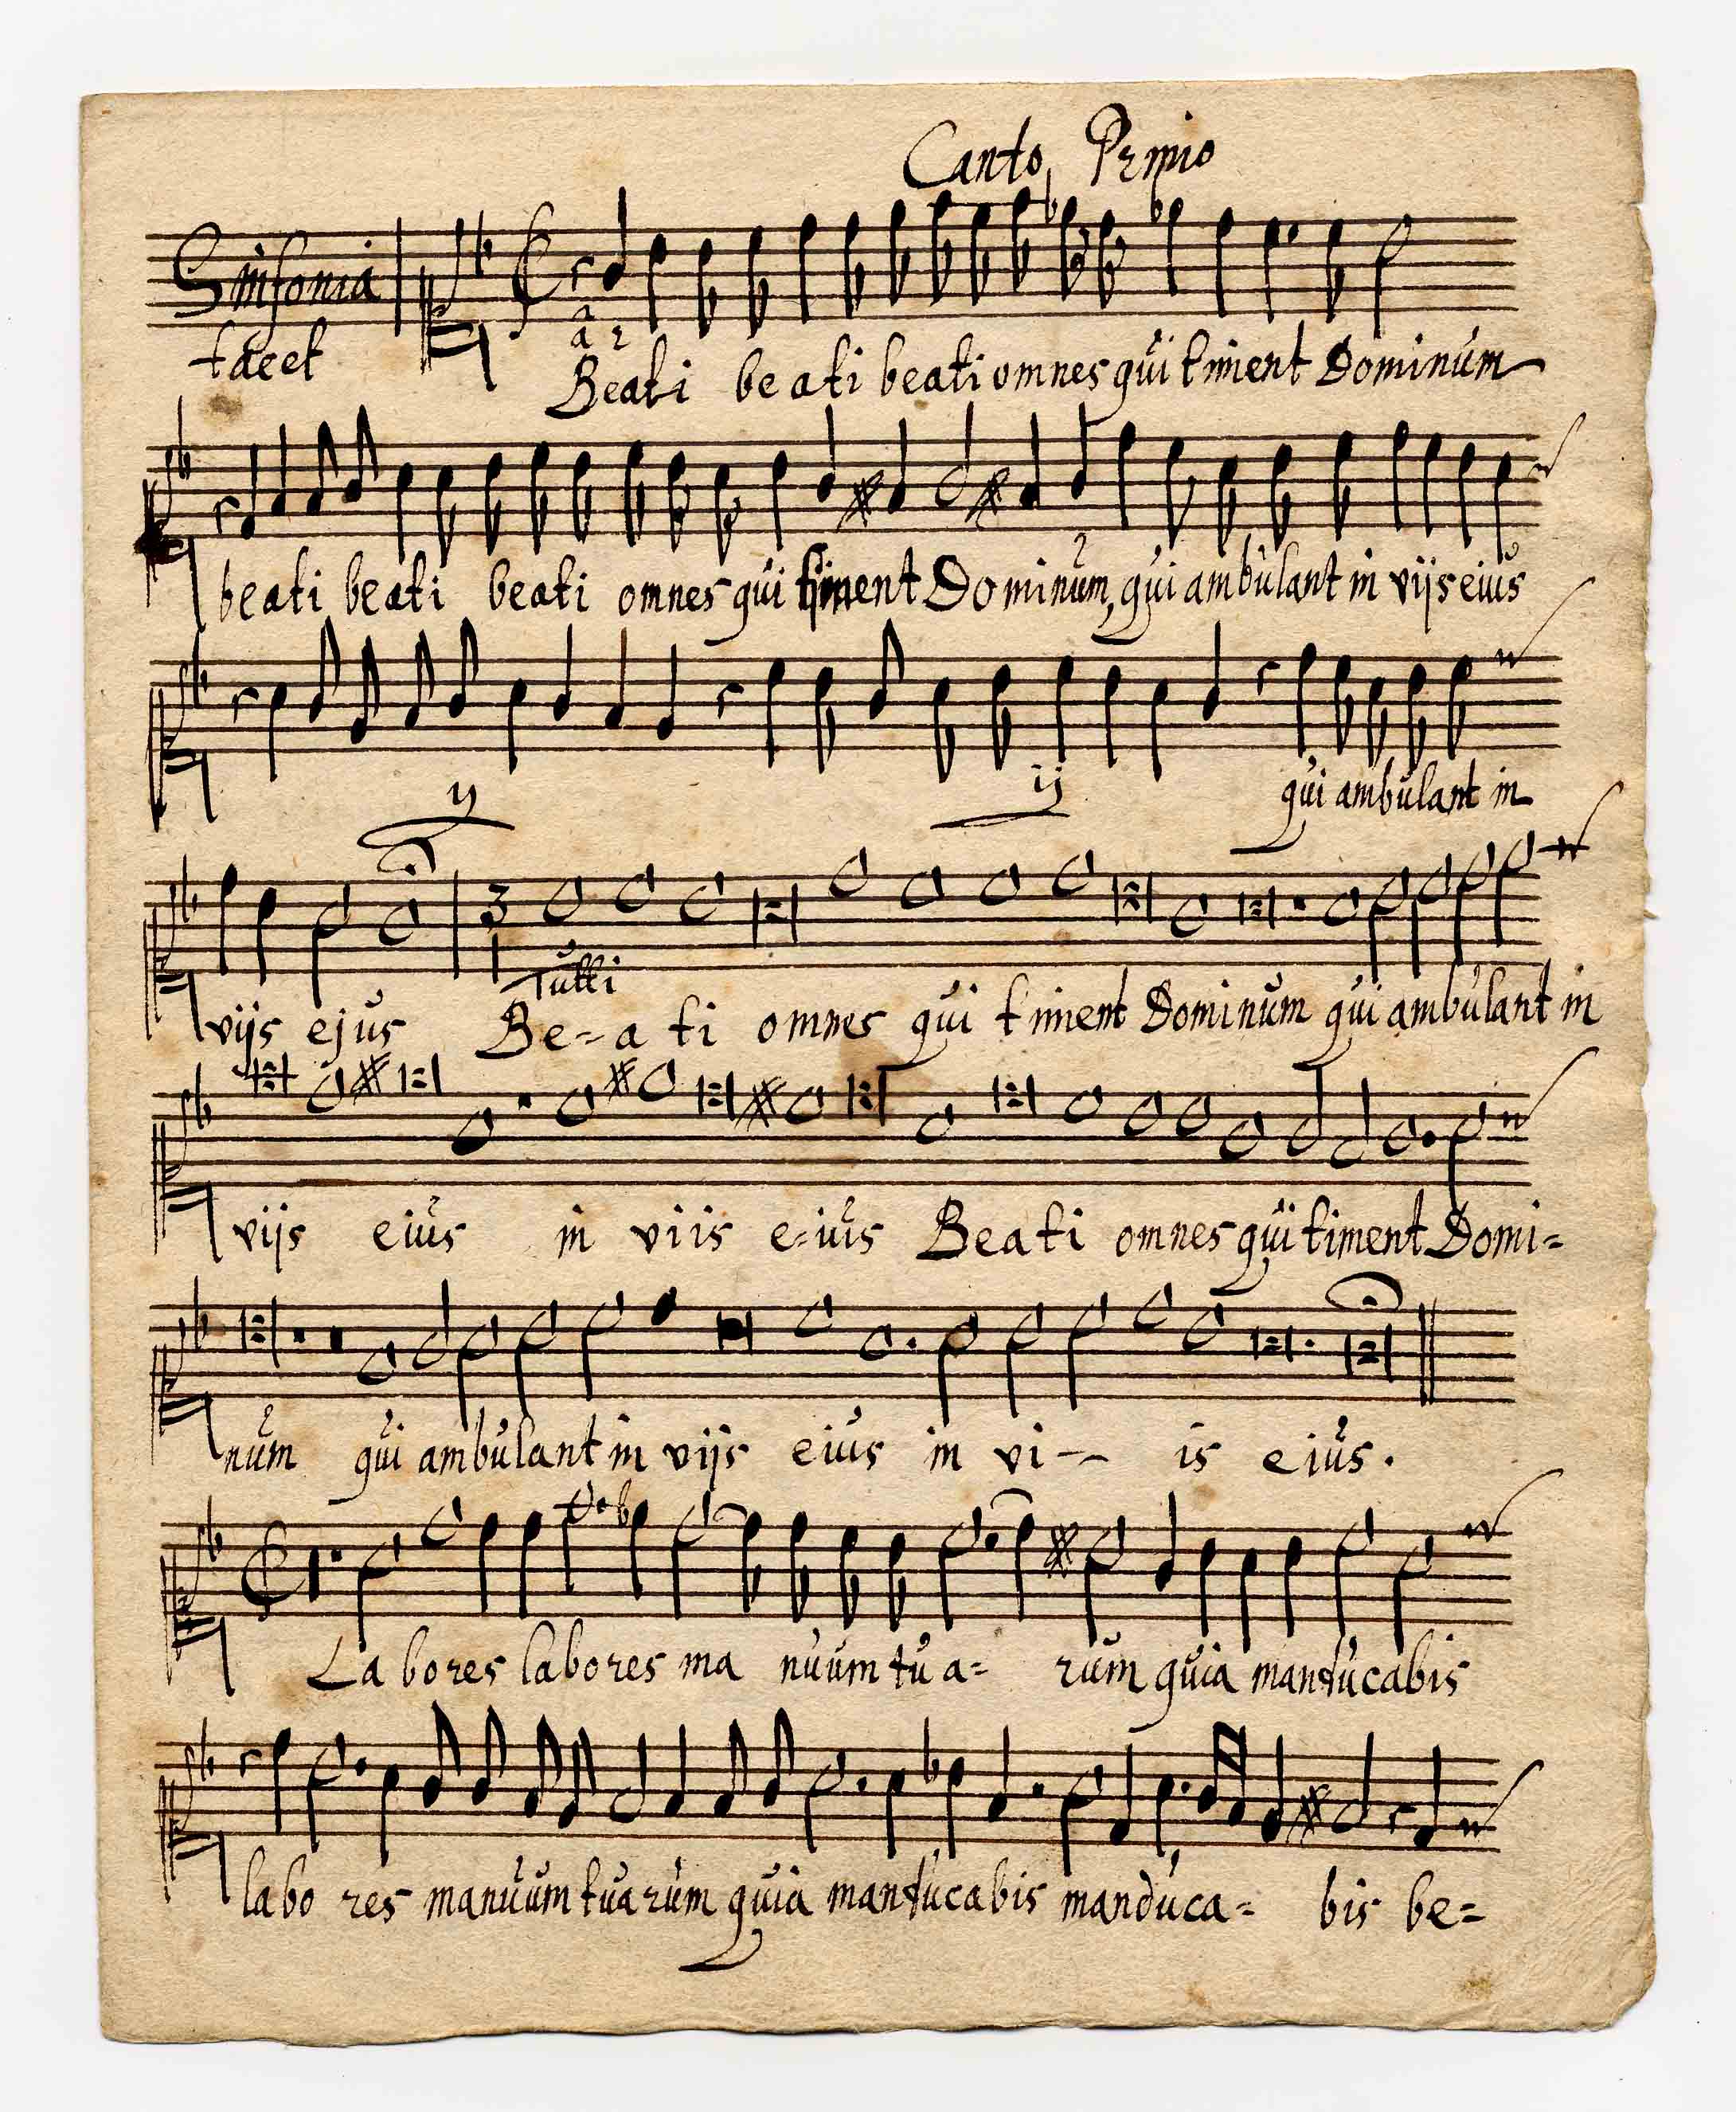 Canto Prmio
Sinfonia
tacet
a 2
Beati be ati beati omnes qui timent Dominum
beati beati beati omnes qui timent Dominum, qui ambulant in vijs eius
ij ij qui ambulant in
3
Tutti
vijs ejus Be=a ti omnes qui timent Dominum qui ambulant in
vijs eius in viis e=ius Beati omnes qui timent Domi=
num qui ambulant in vijs eius in vi-- is eius.
La bores labores ma nuum tu a= rum quia manducabis
labo res manuum tuarum quia manducabis manduca= bis be=